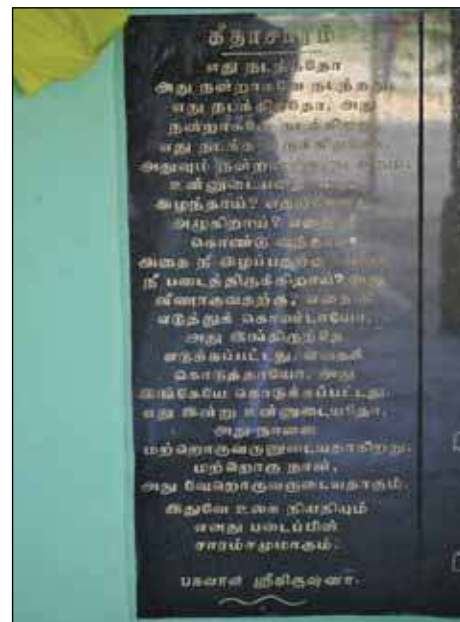 கீதாசாரம்
எது நடந்ததோ
அது நன்றாகவே நடந்தது.
எது நடக்கிறதோ, அது
நன்றாகவே நடக்கிறது.
எது நடக்க
அதுவும் நன்றாகவே
உன்னுடையது
இழந்தாய்? எதற்காக
அழுகிறாய்? எதை நீ
கொண்டு வந்தாய்
அதை நீ இழப்பதற்கு
நீ படைத்திருக்கிறாய்? அது
வீணாகுவதற்கு, எதை நீ
எடுத்துக் கொண்டாயோ,
அது இங்கிருந்தே
எடுக்கப்பட்டது. எதைக்
கொடுத்தாயோ, அது
இங்கேயே கொடுக்கப்பட்டது.
எது இன்று உன்னுடையதோ,
அது நாளை
மற்றொருவருடையதாகிறது.
மற்றொரு நாள்,
அது வேறொருவருடையதாகும்.
இதுவே உலக நியதியும்
எனது படைப்பின்
சாராம்சமுமாகும்.
பகவான் ஸ்ரீகிருஷ்ணா.